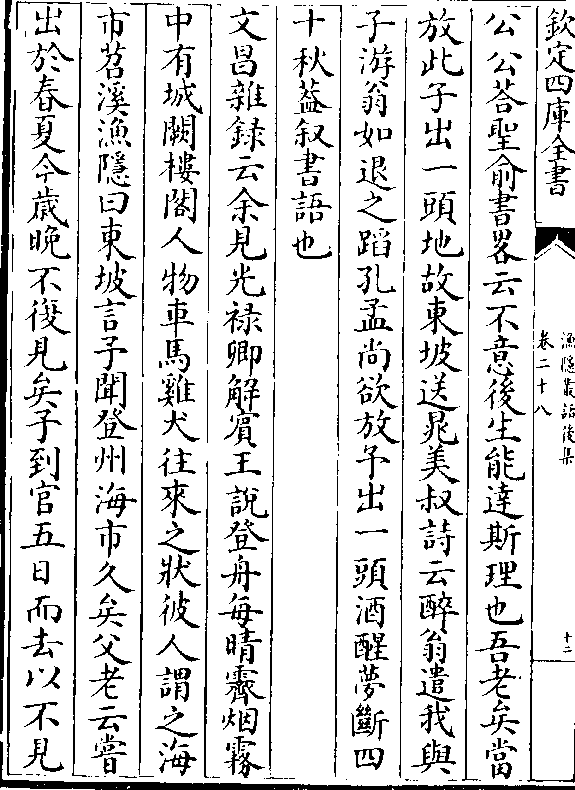 欽定四庫全書
漁隱叢話後集
卷二十八
十二
公公荅聖俞書畧云不意後生能達斯理也吾老矣當
放此子出一頭地故東坡送晁美叔詩云醉翁遣我與
子游翁如退之蹈孔孟尚欲放予出一頭酒醒夢斷四
十秋葢叙書語也
文昌雜錄云余見光禄卿解賓王說登舟每晴霽烟霧
中有城闕樓閣人物車馬雞犬往來之狀彼人謂之海
市苕溪漁隱曰東坡言予聞登州海市久矣父老云嘗
出於春夏今歲晚不復見矣予到官五日而去以不見